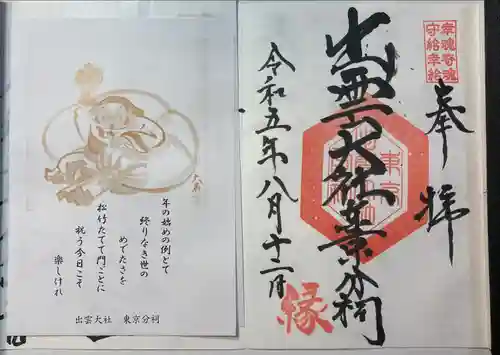 幸魂奇魂
守給幸給
奉拝
出雲大社東京分祠
縁
令和五年八月十二日
年の始めの例とて
終りなき世の
めでたさを
松竹たてて門ごとに
祝う今日こそ
楽しけれ
出雲大社 東京分祠